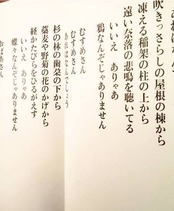 吹きっさらしの屋根の棟から
凍える稲架の柱の上から
遠い奈落の悲鳴を聴いてる
いいえ ありゃあ
鴉なんぞじゃありません
むすめさん
むすめさん
あれはなんでしょう
杉の林の歯朶の中から
藁塚や野菊の花のかげから
経かたびらをひるがえす
いいえ ありゃあ
蝶々なんぞじゃありません